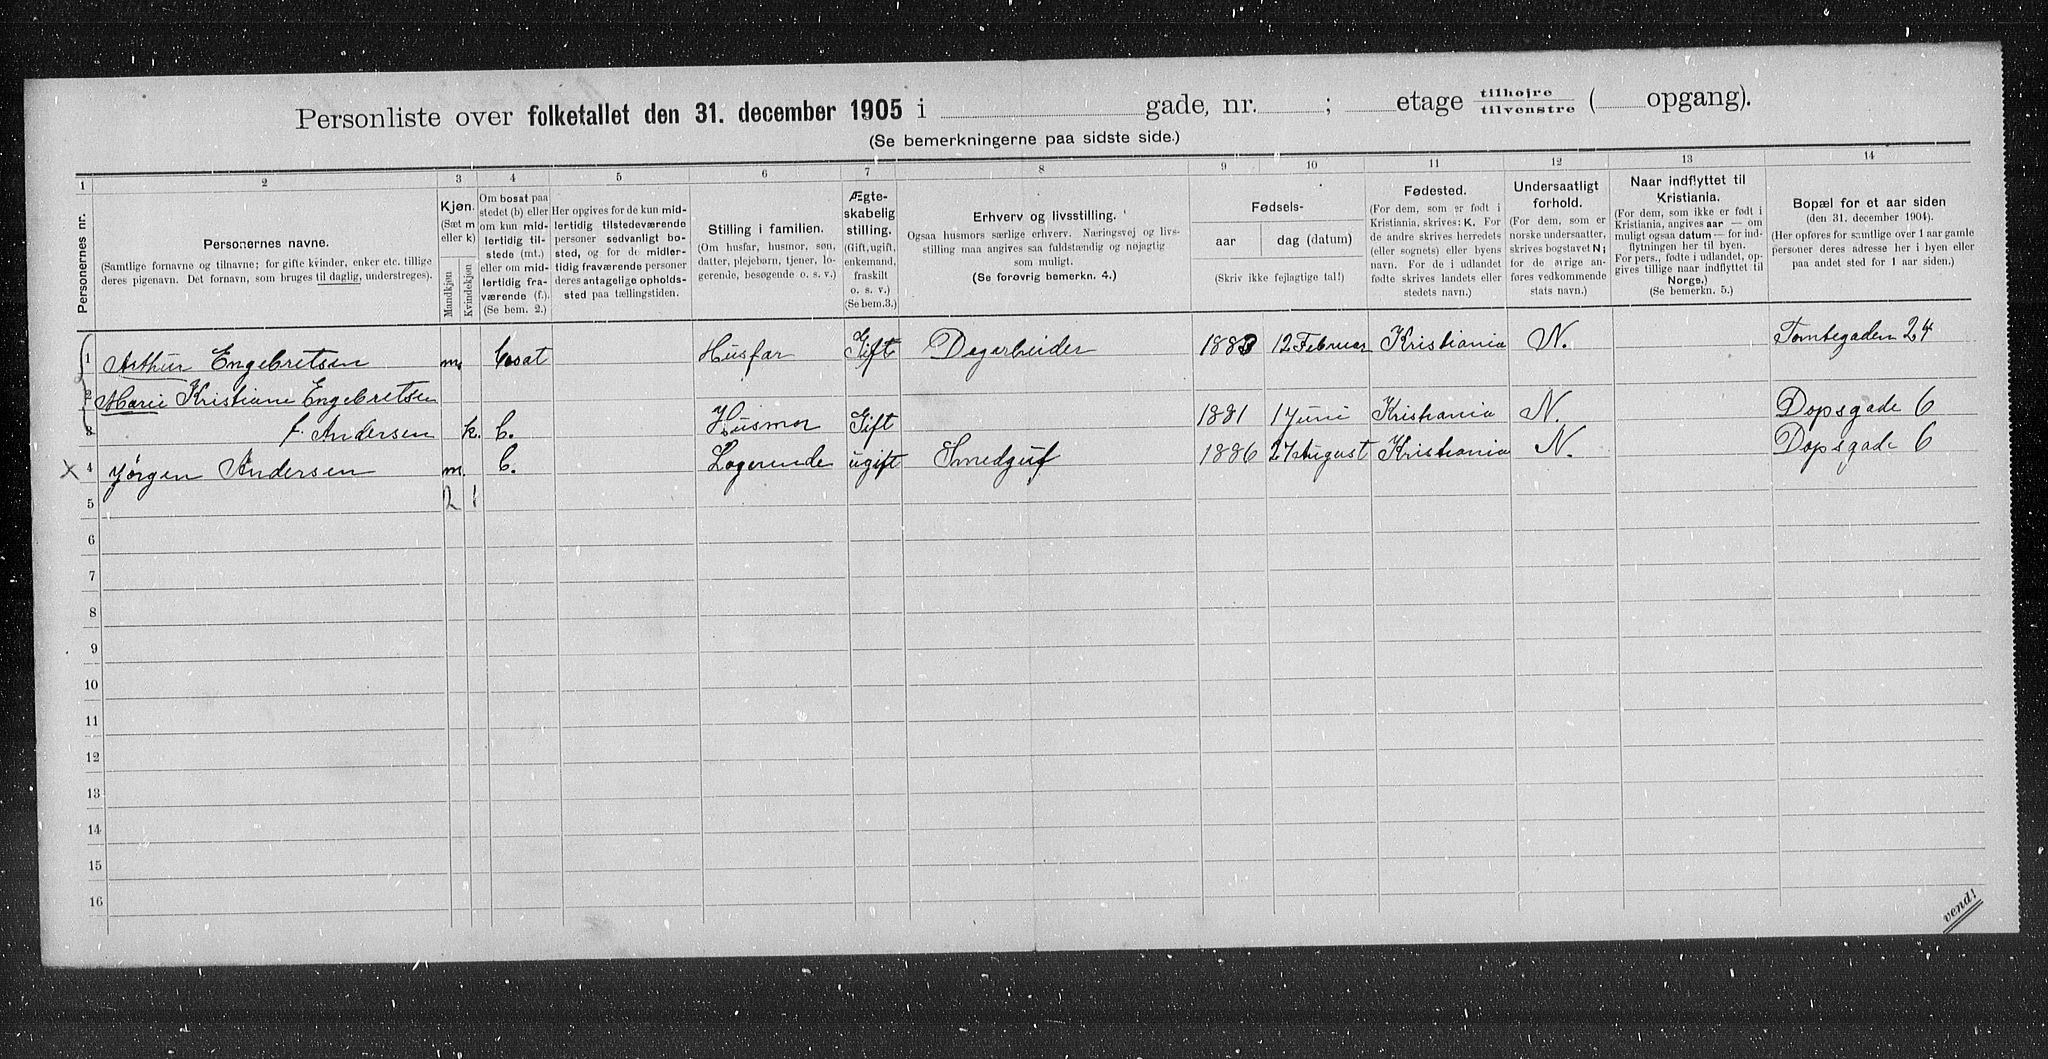 Personliste over folketallet den 31. december 1905 i gade, nr. ; etage tilhøjre tilvenstre ( opgang).
(Se bemerkningerne paa sidste side.)
1 2 3 4 5 6 7 8 9 10 11 12 13 14
Personernes nr.
Personernes navne.
(Samtlige fornavne og tilnavne; for gifte kvinder, enker etc. tillige
deres pigenavn. Det fornavn, som bruges til daglig, understreges).
Kjøn.
(Sæt m
eller k)
Mandkjøn
Kvindekjøn
Om bosat paa
stedet (b) eller
om kun mid-
lertidig til-
stede (mt.)
eller om mid-
lertidig fra-
værende (f.)
(Se bem. 2.)
Her opgives for de kun mid-
lertidig tilstedeværende
personer sedvanlig bo-
sted, og for de midler-
tidig fraværende personer
deres antagelige opholds-
sted paa tællingstiden.
Stilling i familien.
(Om husfar, husmor, søn,
datter, plejebarn, tjener, lo-
gerende, besøgende o. s. v.)
Ægte-
skabelig
stilling.
(Gift, ugift,
enkemand,
fraskilt
o. s. v.)
(Se bem. 3.)
Erhverv og livsstilling.
Ogsaa husmors særlige erhverv. Næringsvej og livs-
stilling maa angives saa fuldstændig og nøjagtig
som muligt.
(Se forøvrig bemerkn. 4.)
Fødsels-
aar
dag (datum)
(Skriv ikke fejlagtige tal!)
Fødested.
(For dem, som er født i
Kristiania, skrives: K. For
de andre skrives herredets
(eller sognets) eller byens
navn. For de i udlandet
fødte skrives landets eller
stedets navn.)
Undersaatligt
forhold.
(For dem, som er
norske undersaatter,
skrives bogstavet N;
for de øvrige an-
føres vedkommende
stats navn.)
Naar indflyttet til
Kristiania.
(For dem, som ikke er født i
Kristiania, angives aar — om
muligt ogsaa datum — for ind-
flytningen her til byen.
For pers., fødte i udlandet, op-
gives tillige naar indflyttet til
Norge.)
(Se bemerkn. 5.)
Bopæl for et aar siden
(den 31. december 1904).
(Her opføres for samtlige over 1 aar gamle
personer deres adresse her i byen eller
paa andet sted for 1 aar siden.)
1 Arthur Engebretsen m. bosat Husfar Gift Dagarbeider 1883 12 Februar Kristiania N. Tomtegaden 24
2 Marie Kristiane Engebretsen
3 f. Andersen k. b. Husmor Gift 1881 1 Juni Kristiania N. Dopsgade 6
x 4 Jørgen Andersen m. b. Logerende ugift Smedgut 1886 27 August Kristiania N. Dopsgade 6
5 2 1
6
7
8
9
10
11
12
13
14
15
16
vend!